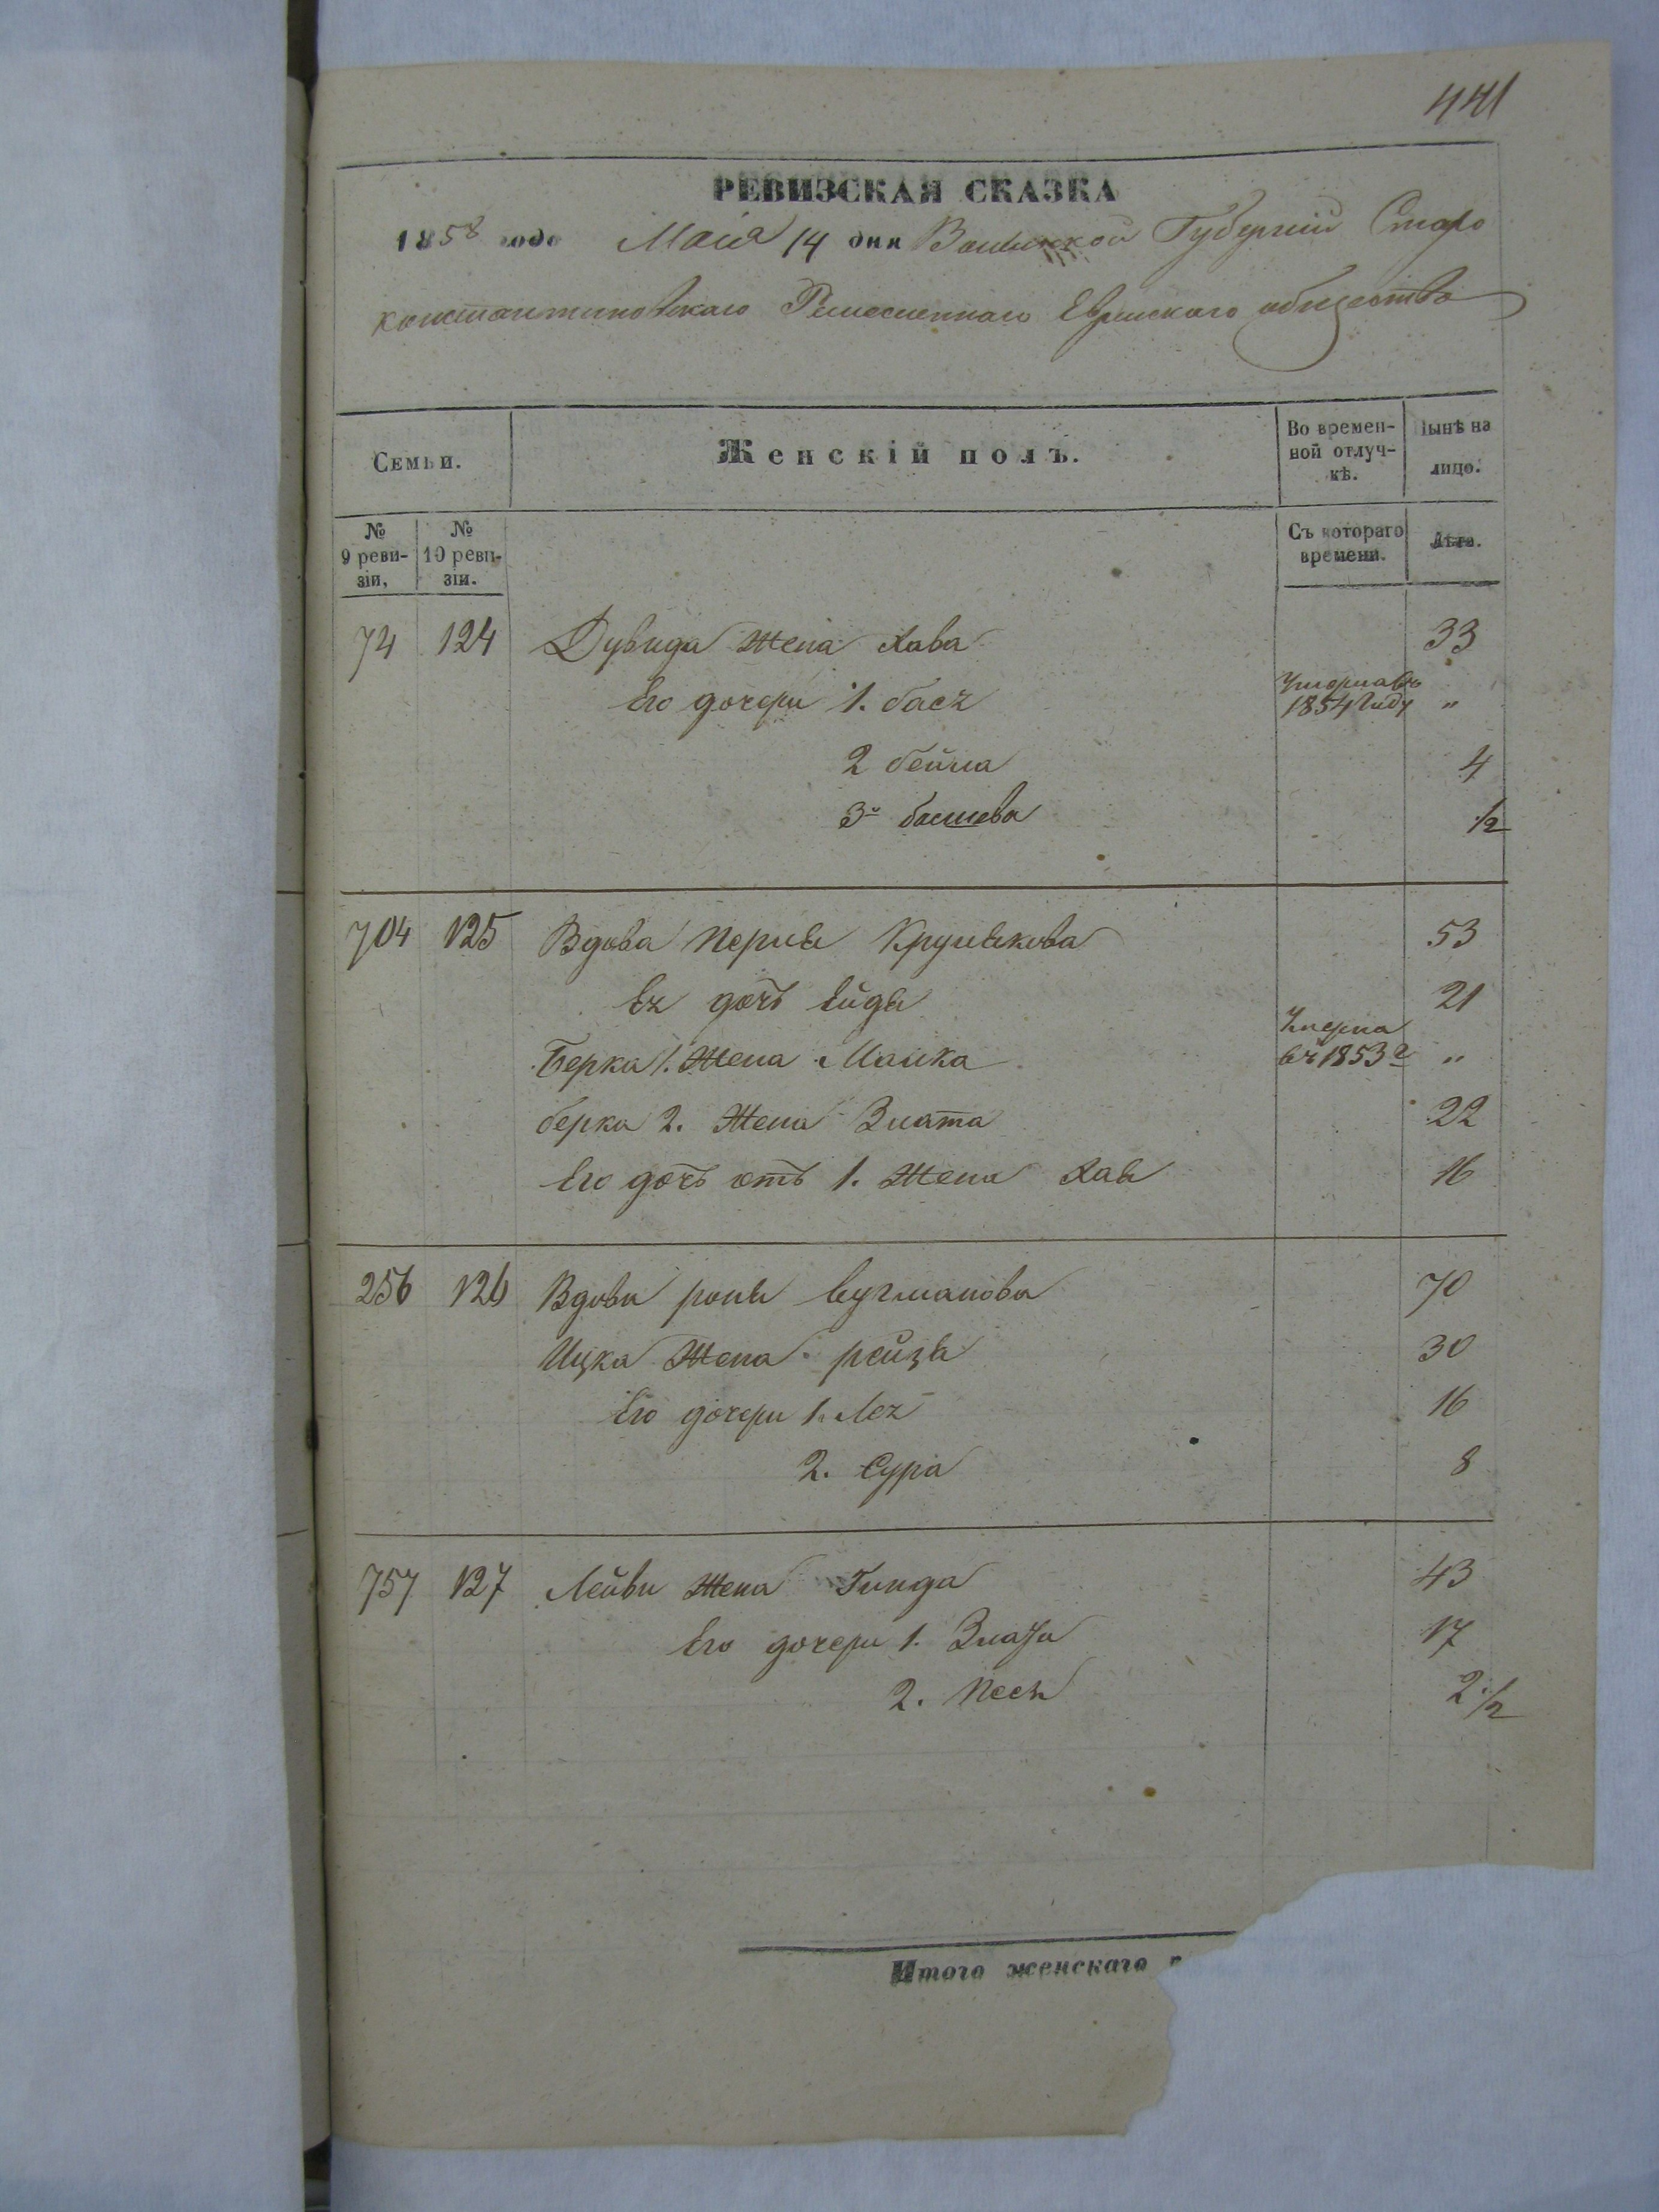 441
РЕВИЗСКАЯ СКАЗКА
1858 года Маія 14 дня Волынской Губерніи Старо
константиновскаго Ремесленнаго Еврейскаго общества
Семьи. Женскій полъ. Во времен-ной отлуч-кѣ. Нынѣ на лицо.
№ 9 реви-зіи. № 10 реви-зіи. Съ котораго времени. Лѣта.
74 124 Дувида Жена Хава 33
Его дочери 1. бася Умерла въ 1854 Году "
2 бейла 4
3я басшева 1/2
704 125 Вдова Перля 53
Ея дочь Ейдя 21
Берка 1. Жена Малка Умерла въ 1853 г "
берка 2. Жена Злата 22
Его дочь отъ 1. Жены Хая 16
256 126 Вдова 70
Ицка Жена рейзя 30
Его дочери 1. Лея 16
2. Сура 8
757 127 Лейбы Жена Гинда 43
Его дочери 1. Злата 17
2. Песя 2 1/2
Итого женскаго